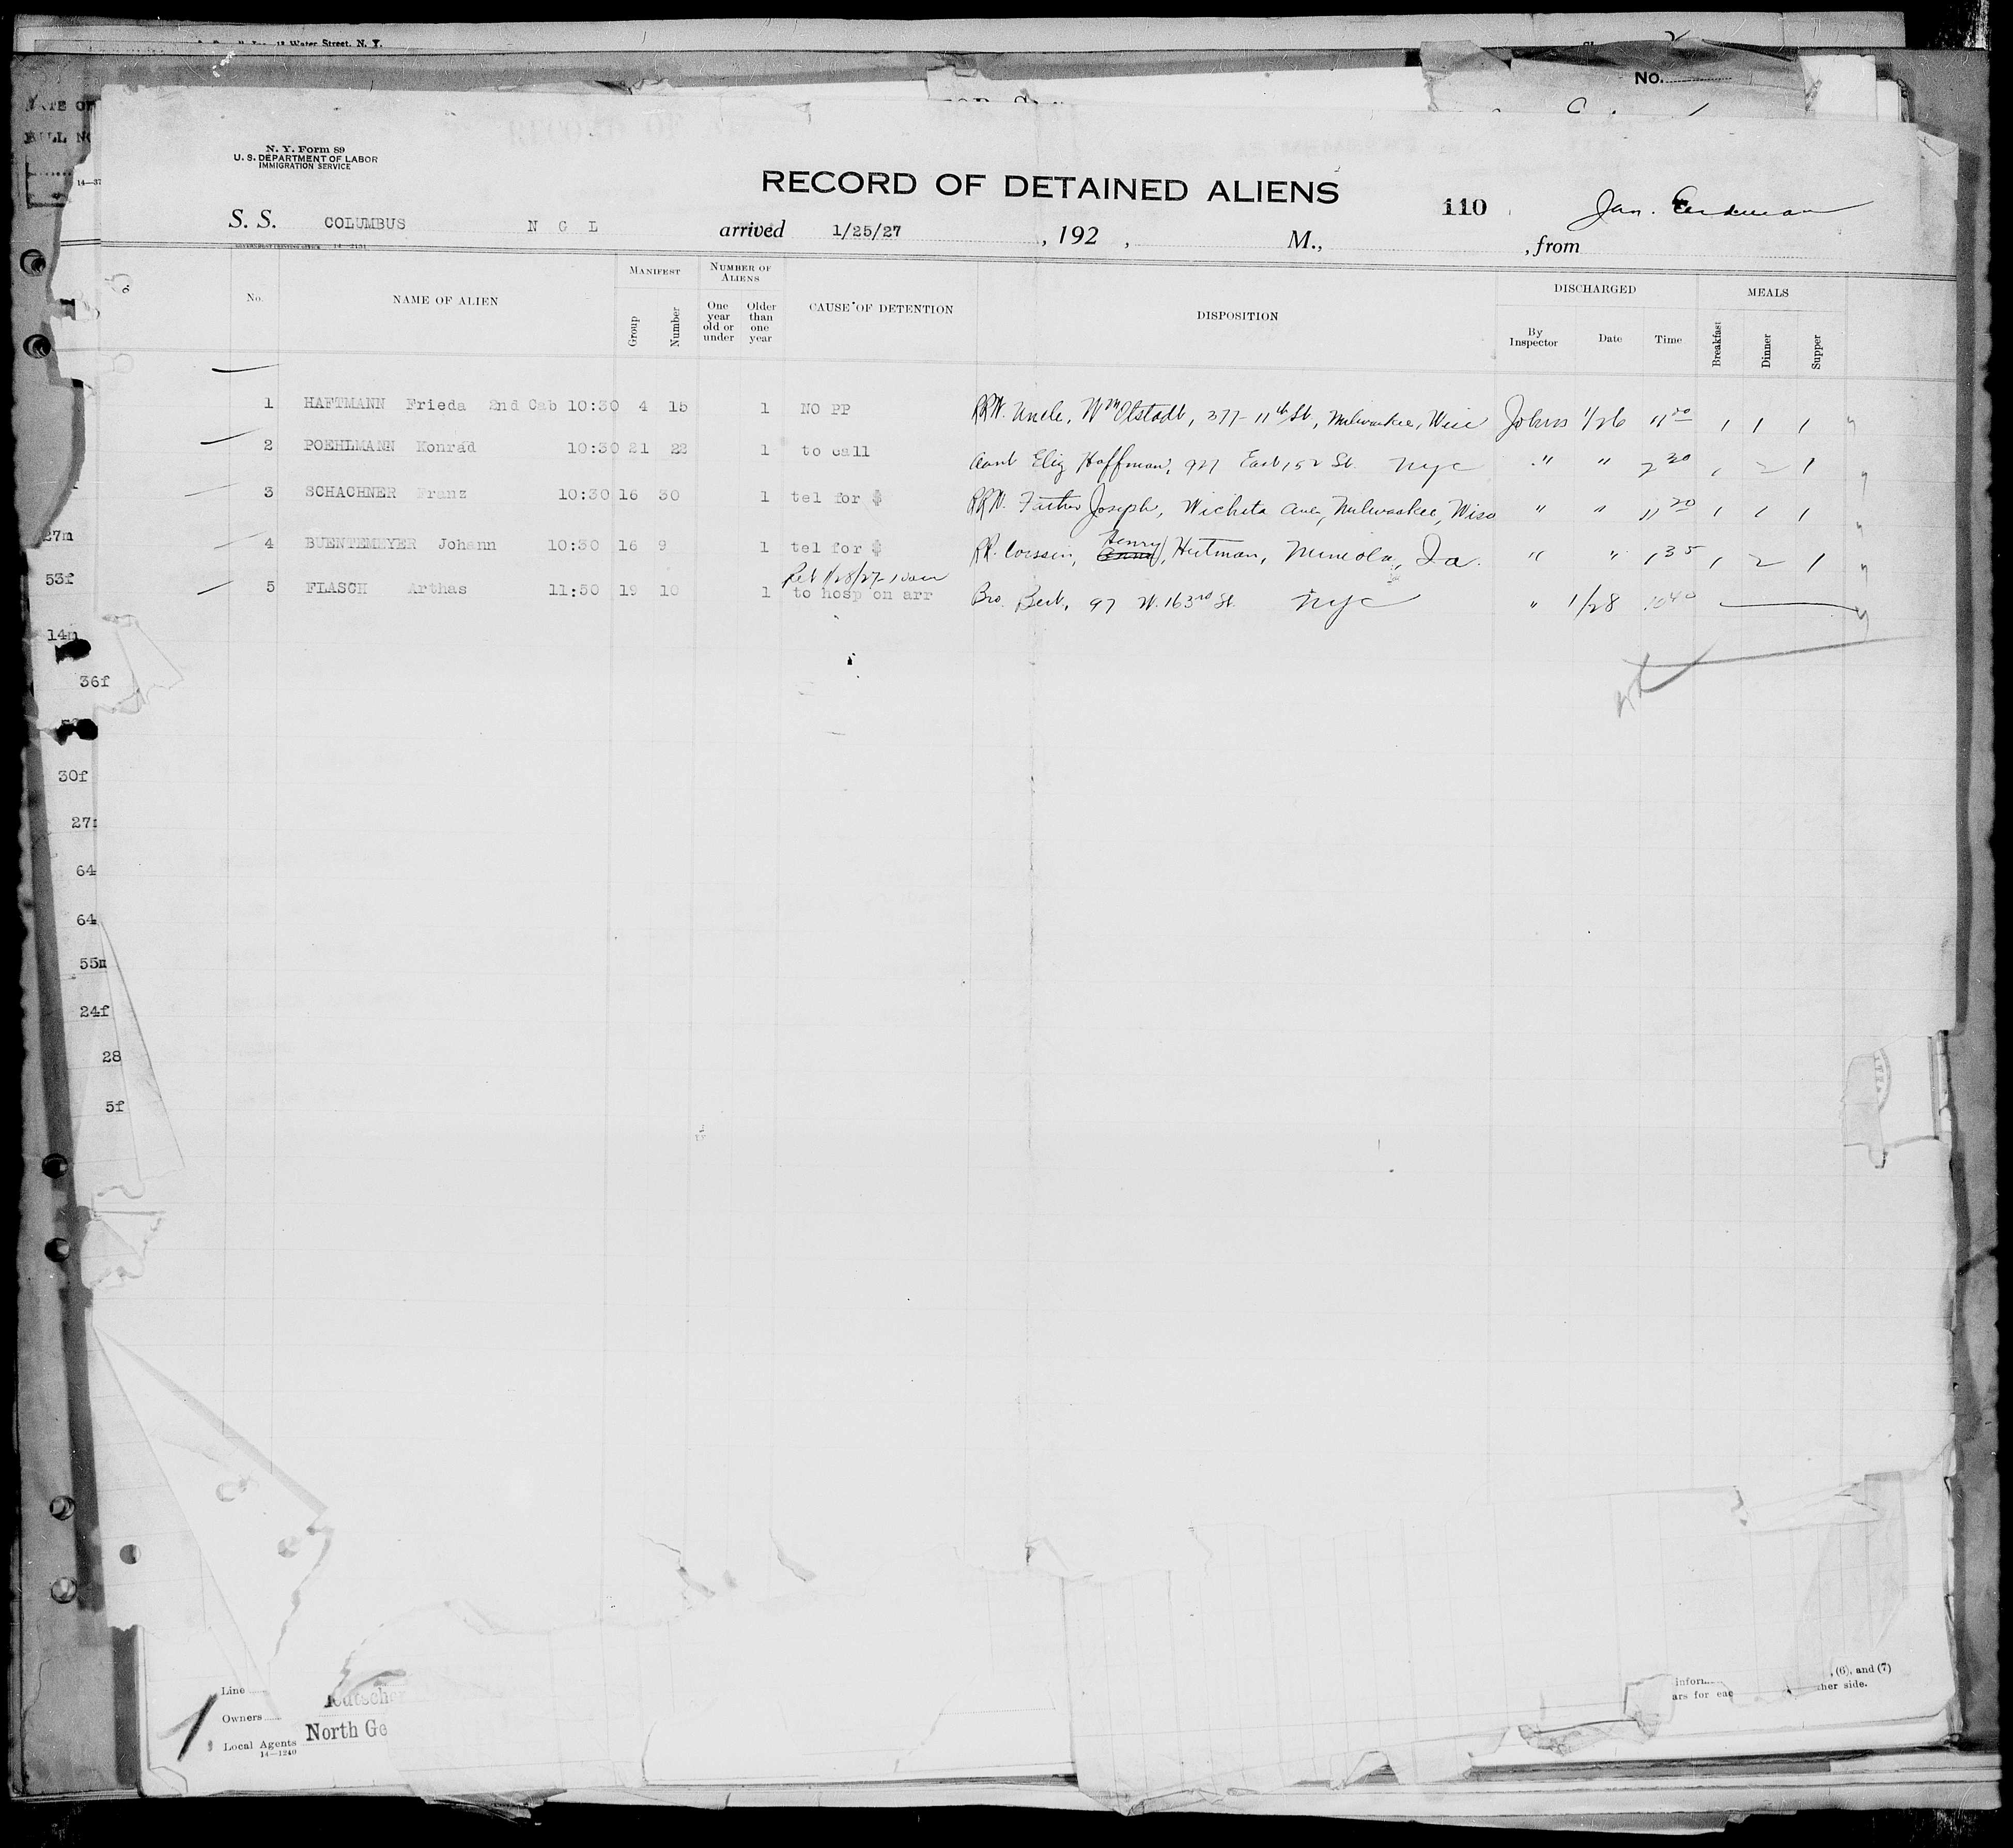 12 Water Street, N. Y.
No.
N. Y. Form 89
U. S. DEPARTMENT OF LABOR
IMMIGRATION SERVICE
RECORD OF DETAINED ALIENS
110
S. S. COLUMBUS N G L arrived 1/25/27, 192 , M., , from
No. NAME OF ALIEN MANIFEST Group Number NUMBER OF ALIENS One year old or under Older than one year CAUSE OF DETENTION DISPOSITION DISCHARGED By Inspector Date Time MEALS Breakfast Dinner Supper
1 HAFTMANN Frieda 2nd Cab 10:30 4 15 1 NO PP RRW. Uncle, Wm Olstadt, 377-11th St, Milwaukee, Wisc Johns 1/26 11 20 1 1 1
2 POEHLMANN Konrad 10:30 21 22 1 to call Aunt Eliz Hoffman, 927 East 152 St. NYC " " 2 30 1 2 1
3 SCHACHNER Franz 10:30 16 30 1 tel for $ RRW. Father Joseph, Wichita Ave, Milwaukee, Wisc " " 11 20 1 1 1
Henry
4 BUENTEMEYER Johann 10:30 16 9 1 tel for $ RR. Cousin, Hutman, Mineola, Ia. " " 1 35 1 2 1
Ret 1/28/27-10am
5 FLASCH Arthas 11:50 19 10 1 to hosp on arr Bro. Bert, 97 W. 163rd St. NYC " 1/28 10 40
27m
53f
14m
36f
30f
27
64
64
55m
24f
28
5f
Line
Owners
North Ge
Local Agents
14—1240
, (6), and (7)
ars for eac her side.